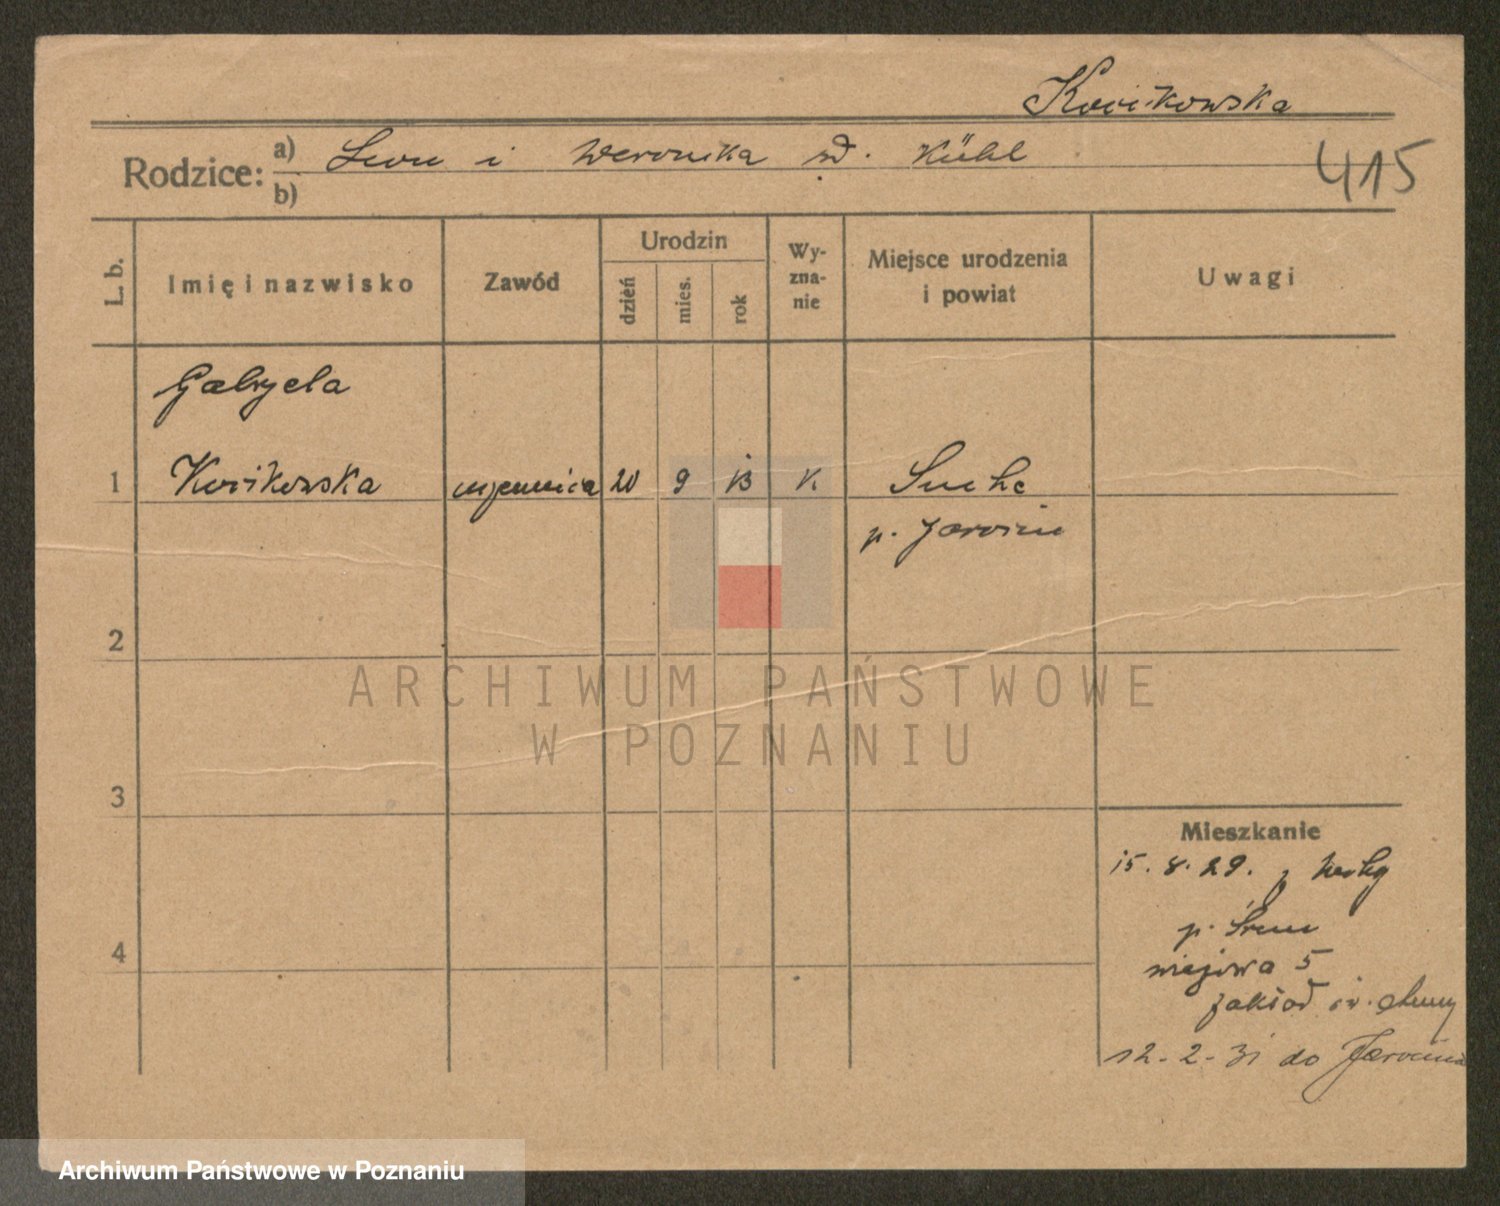 415
Rodzice: a) Leon i Weronika zd. Kühl
b)
L. b.
Imię i nazwisko
Zawód
Urodzin
dzień
mies.
rok
Wy-
zna-
nie
Miejsce urodzenia
i powiat
Uwagi
Gabryela
1 uczennica 20 9 13 K
p. Jarocin
2
3
4
Mieszkanie
15. 8. 29. z
p. Śrem
5
zakład św.
12-2-31 do Jarocina
ARCHIWUM PAŃSTWOWE
W POZNANIU
Archiwum Państwowe w Poznaniu